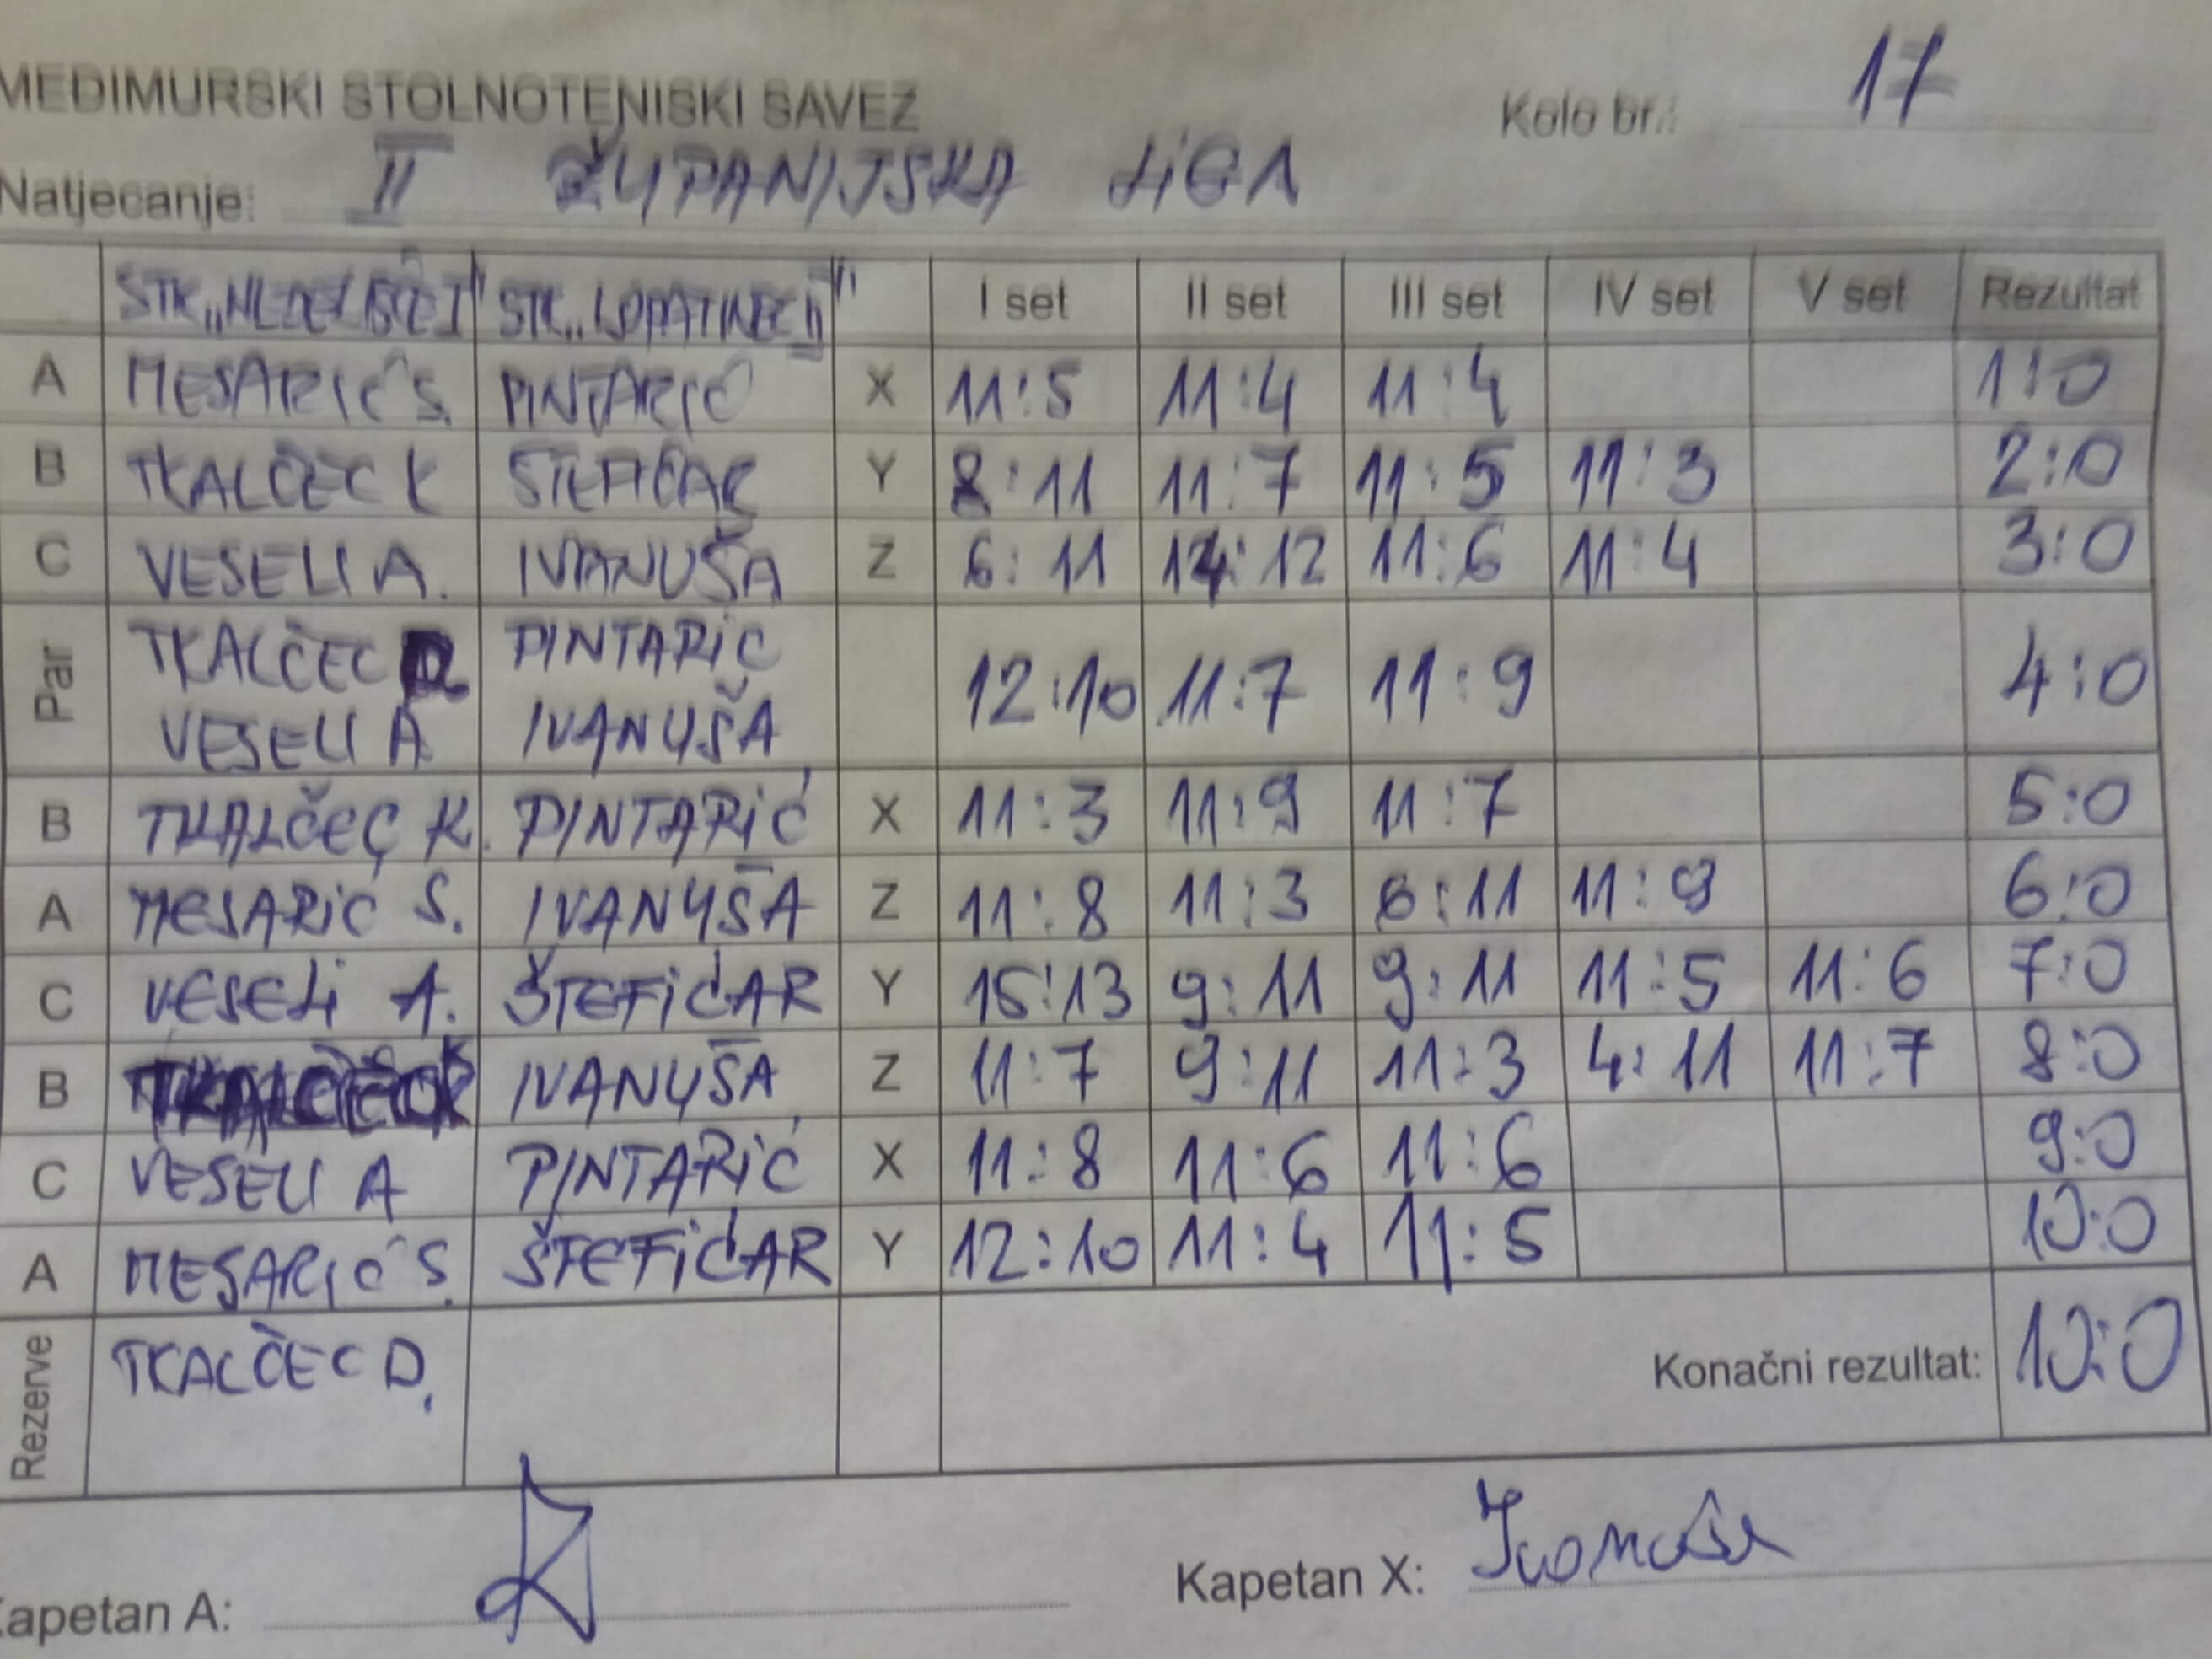 MEĐIMURSKI STOLNOTENISKI SAVEZ Kolo br.: 17
Natjecanje: II ŽUPANIJSKA LIGA
STK „NEDELIŠĆE I" STK „LOPATINEC II" I set II set III set IV set V set Rezultat
A MESARIĆ S. PINTARIĆ X 11:5 11:4 11:4 1:0
B TKALČEC K ŠTEFIČAR Y 8:11 11:7 11:5 11:3 2:0
C VESELI A. IVANUŠA Z 6:11 14:12 11:6 11:4 3:0
Par TKALČEC D. PINTARIĆ 12:10 11:7 11:9 4:0
VESELI A IVANUŠA
B TKALČEC K. PINTARIĆ X 11:3 11:9 11:7 5:0
A MESARIĆ S. IVANUŠA Z 11:8 11:3 6:11 11:9 6:0
C VESELI A. ŠTEFIČAR Y 15:13 9:11 9:11 11:5 11:6 7:0
B TKALČEC K IVANUŠA Z 11:7 9:11 11:3 4:11 11:7 8:0
C VESELI A PINTARIĆ X 11:8 11:6 11:6 9:0
A MESARIĆ S. ŠTEFIČAR Y 12:10 11:4 11:5 10:0
Rezerve TKALČEC D. Konačni rezultat: 10:0
Kapetan A: Kapetan X: Ivanuša